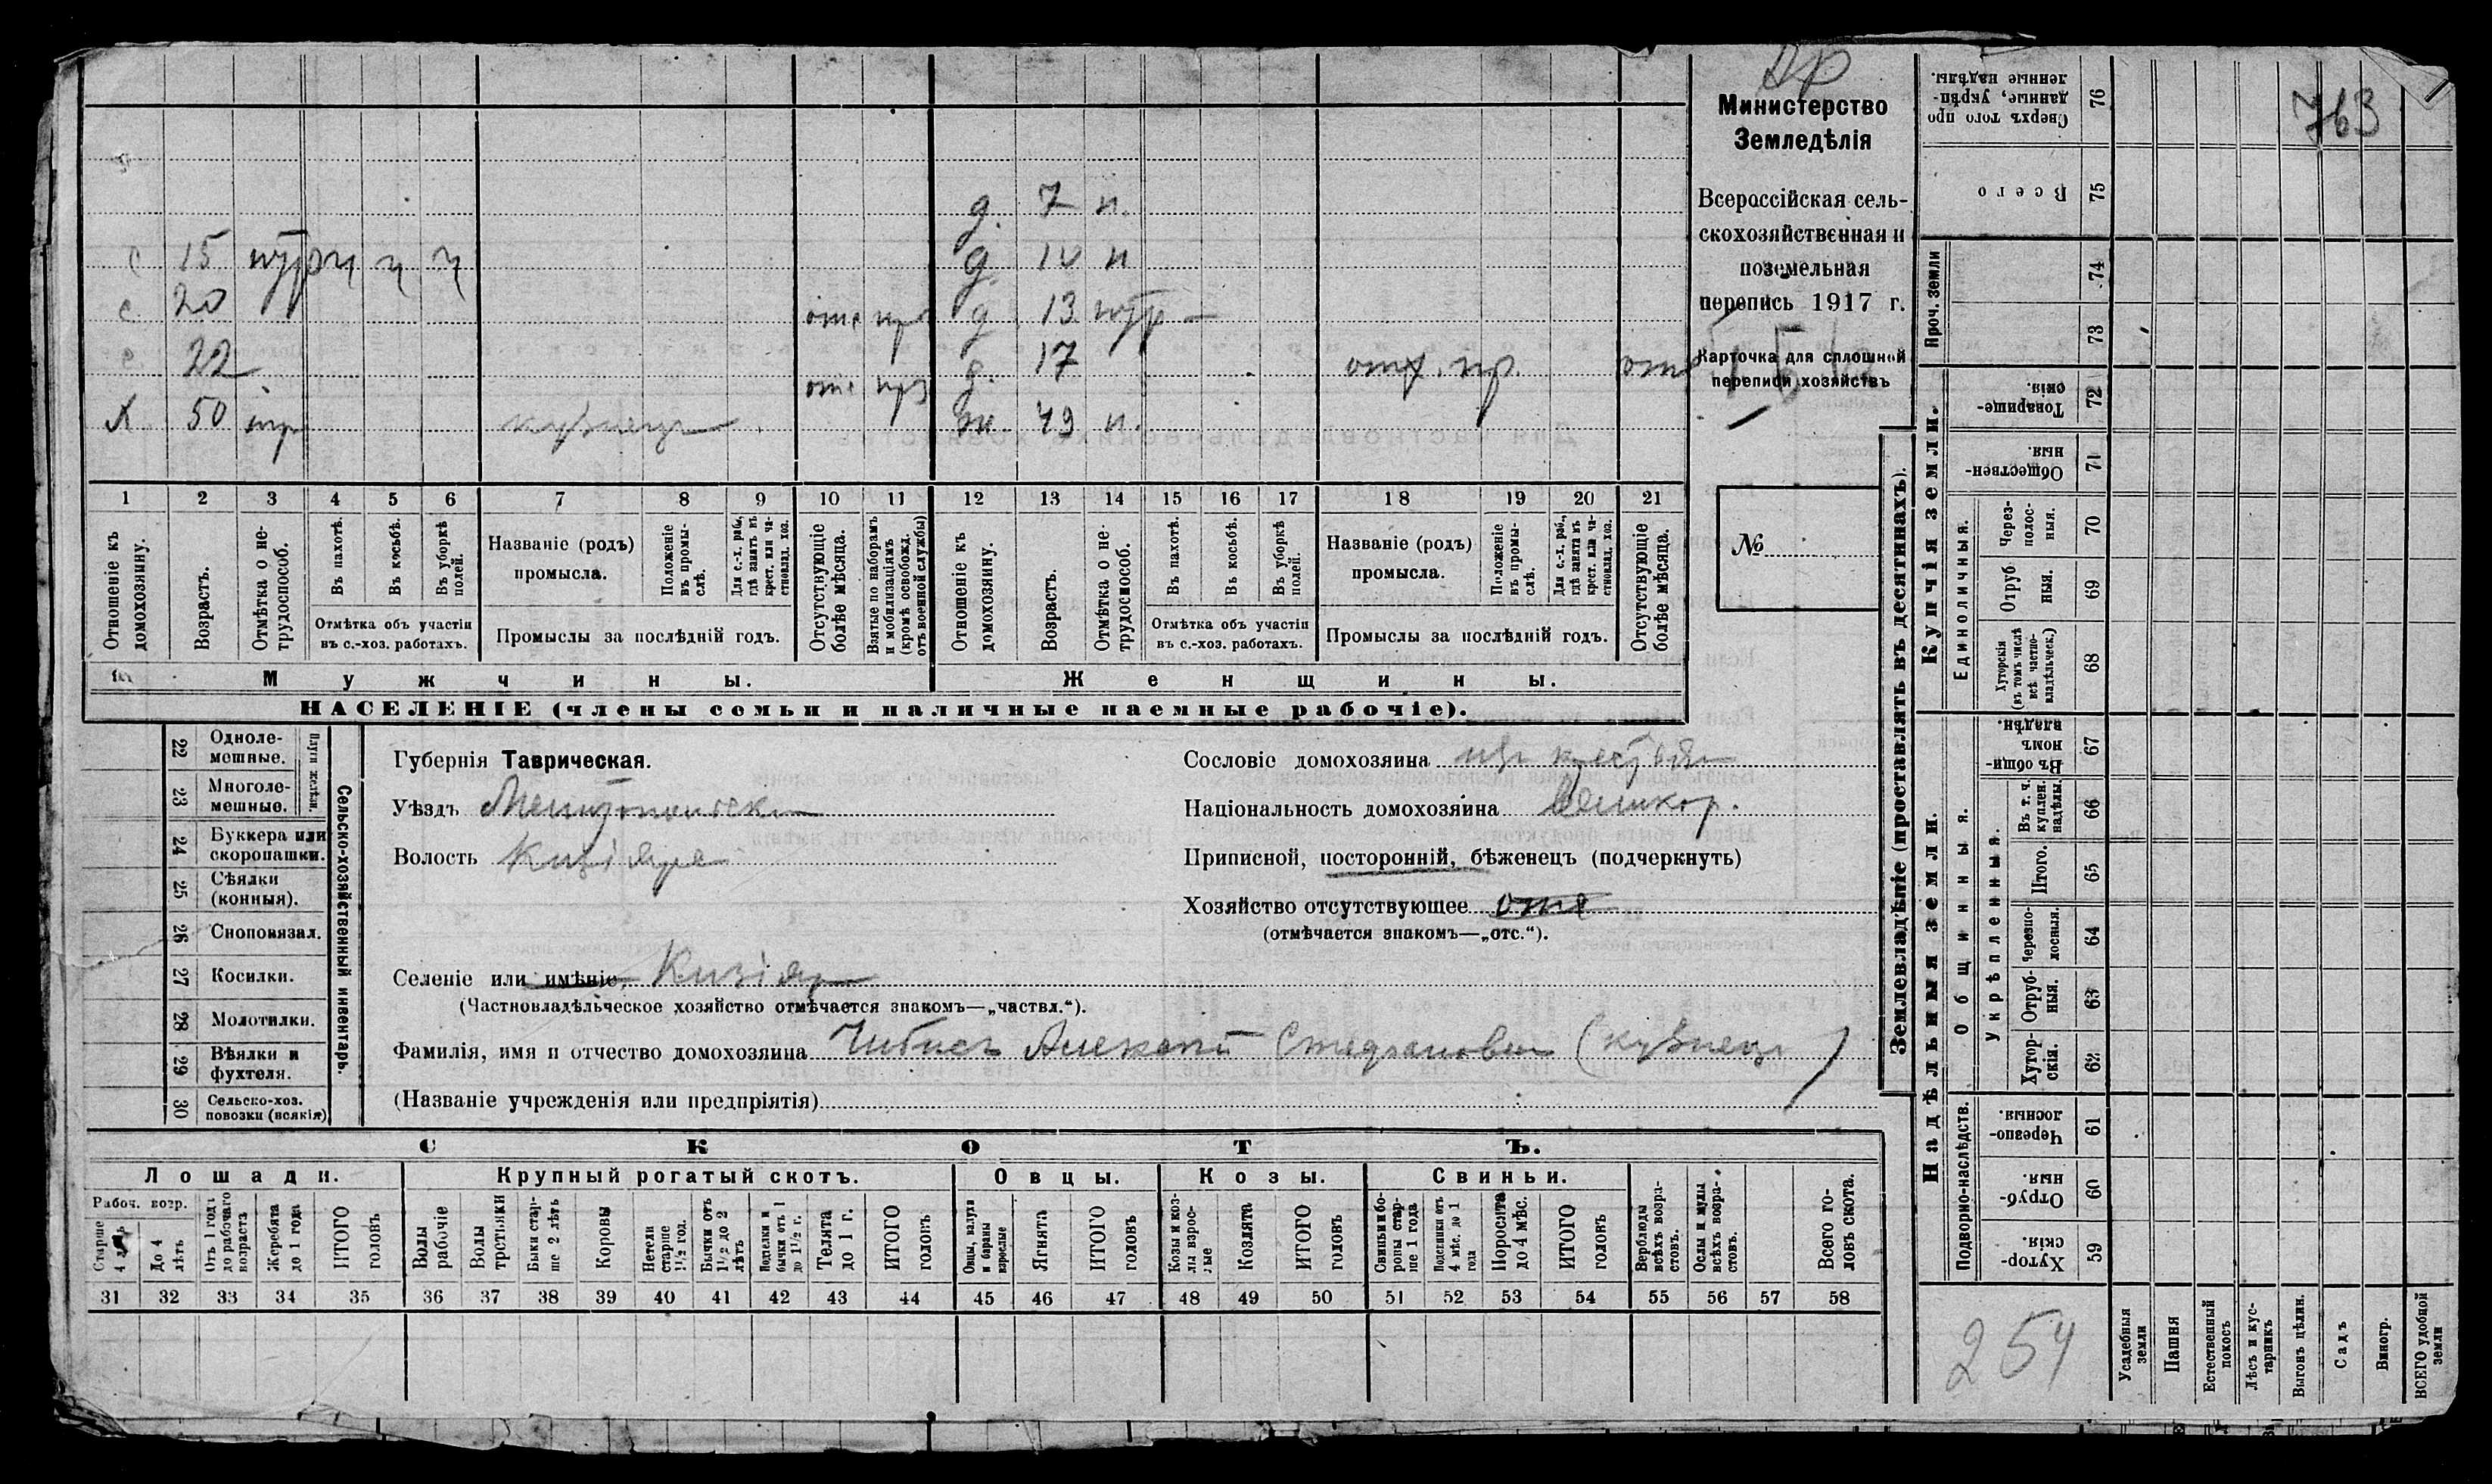 Др
763
Министерство
Земледѣлія
Всероссійская сель-
скохозяйственная и
поземельная
перепись 1917 г.
Карточка для сплошной
переписи хозяйствъ
№
д. 7 н.
с 15 ч ч д 10 н
с 20 отс д 13
с 22 отс д. 17 отх. пр. отс
х 50 кузнецъ ж. 49 н.
1 2 3 4 5 6 7 8 9 10 11 12 13 14 15 16 17 18 19 20 21
Отношеніе къ домохозяину.
Возрастъ.
Отмѣтка о не-трудоспособ.
Въ пахотѣ.
Въ косьбѣ.
Въ уборкѣ полей.
Отмѣтка объ участіи
въ с.-хоз. работахъ.
Названіе (родъ)
промысла.
Положеніе въ промы-слѣ.
Для с.-х. раб., гдѣ занятъ въ крест. или ча-стновлад. хоз.
Промыслы за послѣдній годъ.
Отсутствующіе болѣе мѣсяца.
Взятые по наборамъ и мобилизаціямъ (кромѣ освобожд. отъ военной службы)
Отношеніе къ домохозяину.
Возрастъ.
Отмѣтка о не-трудоспособ.
Въ пахотѣ.
Въ косьбѣ.
Въ уборкѣ полей.
Отмѣтка объ участіи
въ с.-хоз. работахъ.
Названіе (родъ)
промысла.
Положеніе въ промы-слѣ.
Для с.-х. раб., гдѣ занята въ крест. или ча-стновлад. хоз.
Промыслы за послѣдній годъ.
Отсутствующіе болѣе мѣсяца.
Мужчины.
Женщины.
НАСЕЛЕНІЕ (члены семьи и наличные наемные рабочіе).
Сельско-хозяйственный инвентарь.
Плуги желѣзн.
22 Одноле-мешные.
23 Многоле-мешные.
24 Буккера или скоропашки.
25 Сѣялки (конныя).
26 Сноповязал.
27 Косилки.
28 Молотилки.
29 Вѣялки и фухтеля.
30 Сельско-хоз. повозки (всякія)
Губернія Таврическая.
Уѣздъ Мелитопольскі
Волость Кизіяр
Селеніе или имѣніе, Кизіяр
(Частновладѣльческое хозяйство отмѣчается знакомъ—„частвл.“).
Фамилія, имя и отчество домохозяина Чибисъ Алексѣй Стефанович (кузнецъ)
(Названіе учрежденія или предпріятія)
Сословіе домохозяина изъ крестьян
Національность домохозяина Великор.
Приписной, посторонній, бѣженецъ (подчеркнуть)
Хозяйство отсутствующее отс
(отмѣчается знакомъ—„отс.“).
СКОТЪ.
Лошади.
Крупный рогатый скотъ.
Овцы.
Козы.
Свиньи.
Рабоч. возр.
Старше 4 лѣтъ
До 4 лѣтъ
Отъ 1 года до рабочаго возраста
Жеребята до 1 года
ИТОГО головъ
Волы рабочіе
Волы третьяки
Быки стар-ше 2 лѣтъ
Коровы
Нетели старше 1½ год.
Бычки отъ 1½ до 2 лѣтъ
Подтелки и бычки отъ 1 до 1½ г.
Телята до 1 г.
ИТОГО головъ
Овцы, валухи и бараны взрослые
Ягнята
ИТОГО головъ
Козы и коз-лы взрос-лые
Козлята
ИТОГО головъ
Свиньи и бо-ровы стар-ше 1 года
Подсвинки отъ 4 мѣс. до 1 года
Поросята до 4 мѣс.
ИТОГО головъ
Верблюды всѣхъ возра-стовъ.
Ослы и мулы всѣхъ возра-стовъ.
Всего го-ловъ скота.
31 32 33 34 35 36 37 38 39 40 41 42 43 44 45 46 47 48 49 50 51 52 53 54 55 56 57 58
Землевладѣніе (проставлять въ десятинахъ).
Надѣльныя земли.
Купчія земли.
Проч. земли
Подворно-наслѣдств.
Общинныя.
Укрѣпленныя.
Единоличныя.
Сверхъ того про данные, укрѣп-ленные надѣлы. 76
Всего 75
74
73
Товарище-скія. 72
Обществен-ныя. 71
Через-полос-ныя. 70
Отруб ныя. 69
Хуторскія (въ томъ числѣ всѣ частно-владѣльческ.) 68
Въ общи-номъ владѣн. 67
Въ т. ч. куплен. надѣлы. 66
Итого. 65
Черезпо-лосныя. 64
Отруб-ныя. 63
Хутор-скія. 62
Черезпо-лосныя. 61
Отруб-ныя. 60
Хутор-скія. 59
254
Усадебныя земли
Пашня
Естественный покосъ
Лѣсъ и кус-тарникъ
Выгонъ цѣлин.
Садъ
Виногр.
ВСЕГО удобной земли